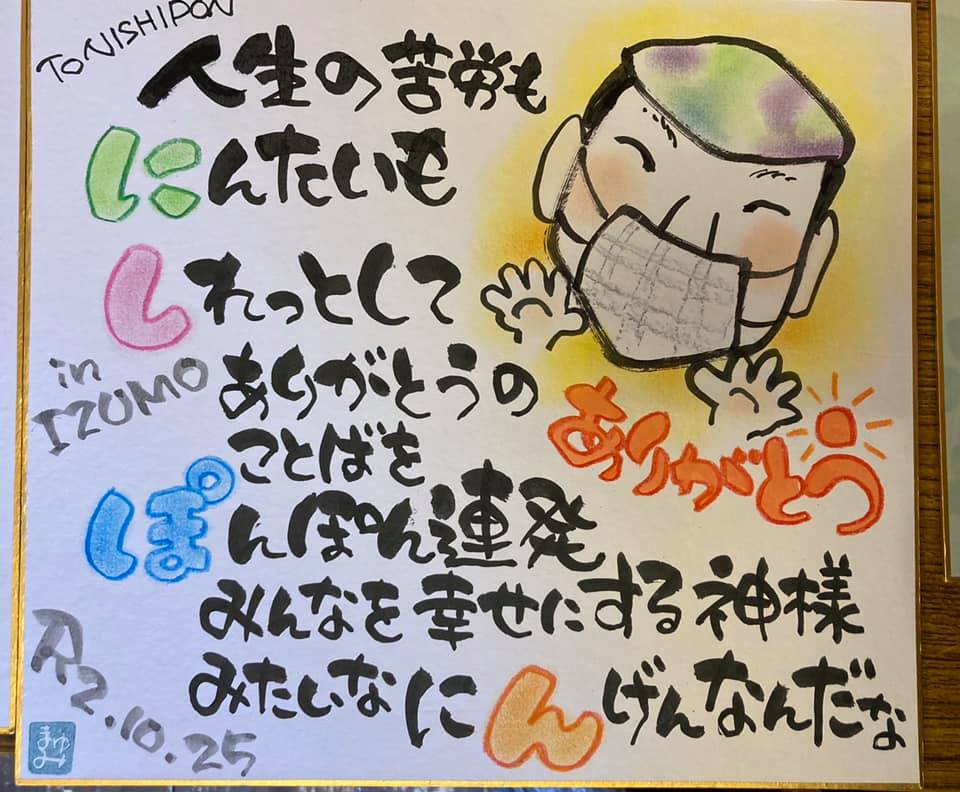 To NISHIPON
人生の苦労も
にんたいも
しれっとして
in
IZUMO
ありがとうの
ことばを
ありがとう
ぽんぽん連発
みんなを幸せにする神様
みたいなにんげんなんだな
R2.10.25
まゆみ